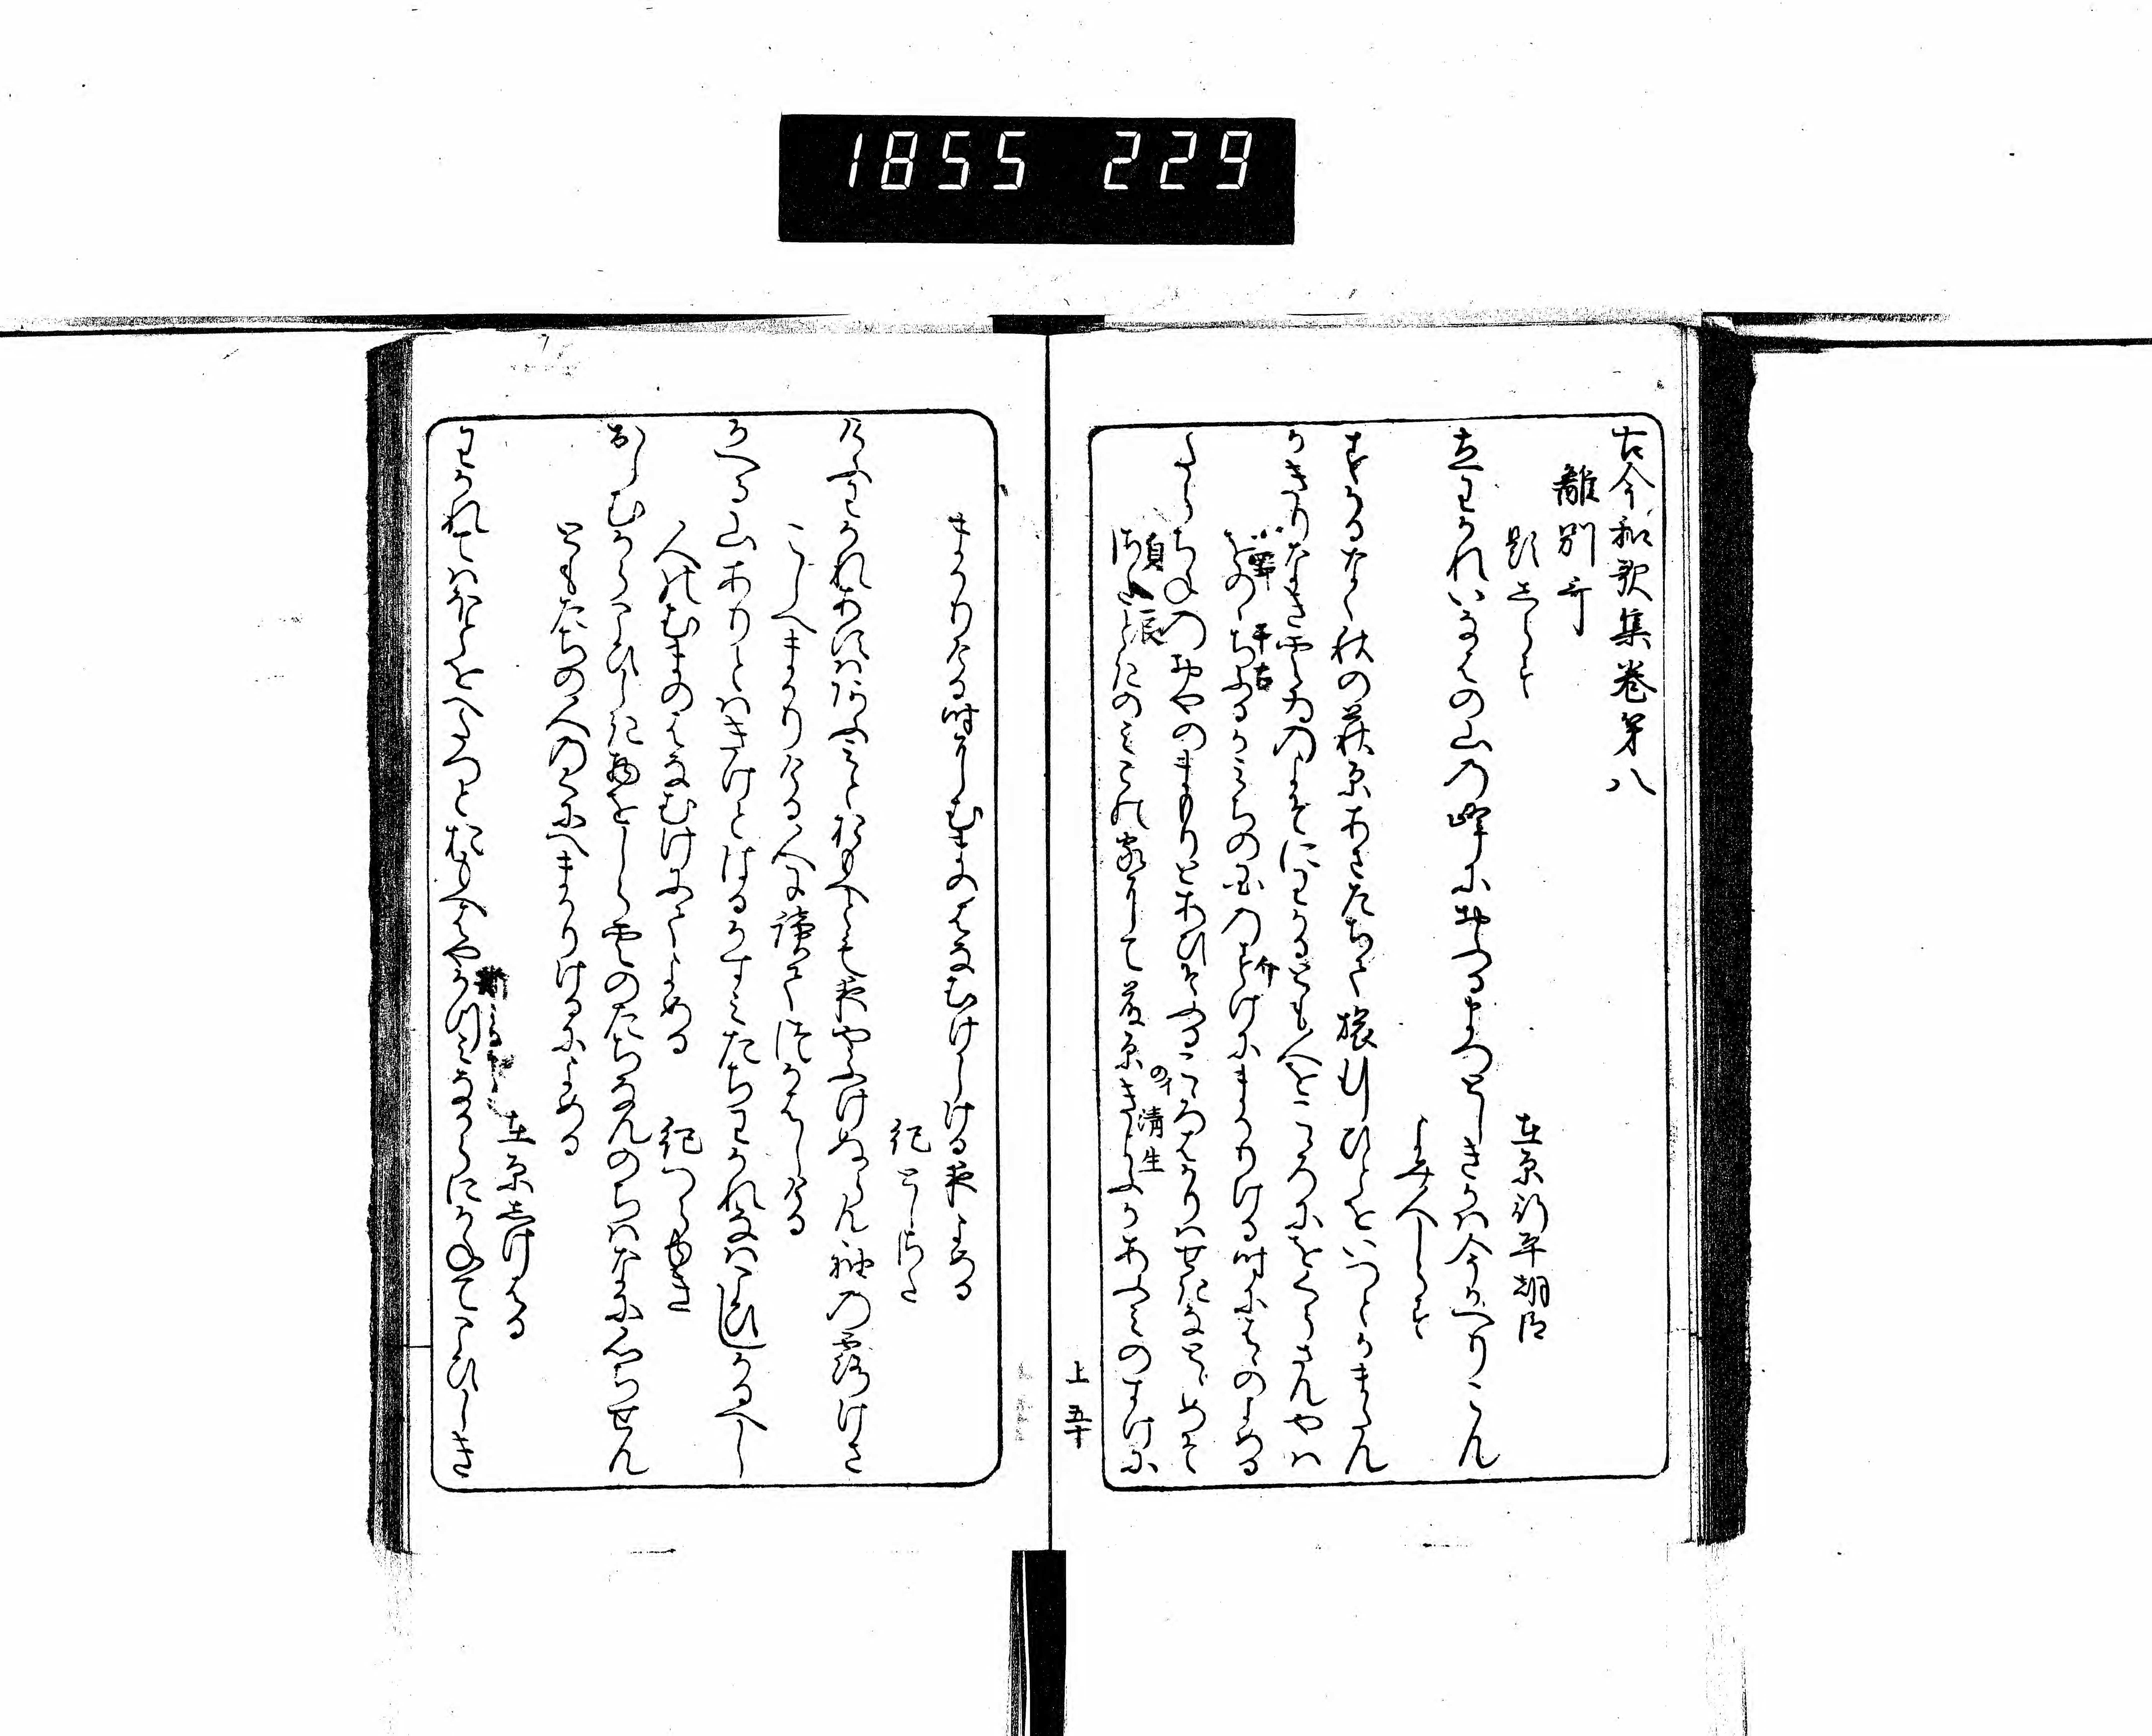 1855 229
古今和歌集巻第八
離別哥
題しらす
在原行平朝臣
立わかれいなはの山の峰におふるまつとしきかは今かへりこん
よみ人しらす
すかるなく秋の萩原あさたちて旅行ひとをいつとかまたん
かきりなき雲ゐのよそにわかるとも人をこゝろにをくらさんやは
をのゝちふるかみちの国のすけにまかりける時にはゝのよめる
千古
介
たらちねのおやのまもりとあひそふるこゝろはかりはせきなとゝめそ
貞辰
さたときのみこの家にて藤原きよふかあふみのすけに
のイ
清生
上 五十
まかりける時にむまのはなむけしける夜よめる
紀としさた
けふわかれあすはあふみとおもへとも夜やふけぬらん袖の露けき
こしへまかりける人に読てつかはしける
かへる山ありとはきけとはるかすみたちわかれなはこひしかるへし
人のむまのはなむけにてよめる
紀つらゆき
おしむからこひしき物をしら雲のたちなんのちはなに心ちせん
ともたちの人のくにへまかりけるによめる
在原しけはる
わかれてはほとをへたつとおもへはやかつみなからにかねてこひしき